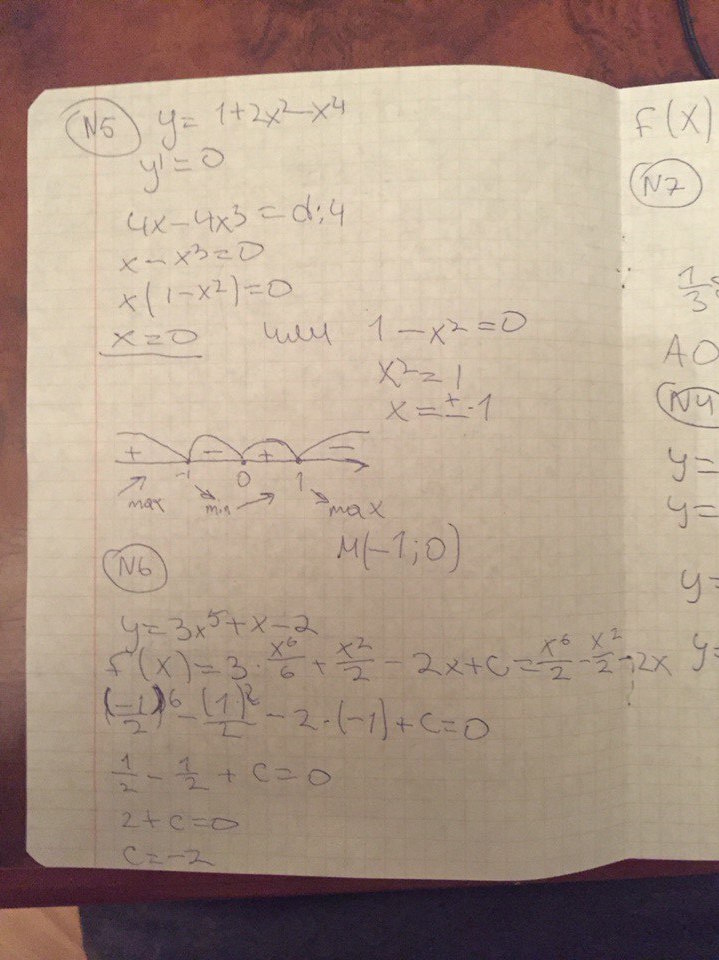 N5 y = 1+2x²-x⁴
y' = 0
4x-4x³ = 0 :4
x - x³=0
x(1-x²)=0
x=0 или 1-x²=0
x²=1
x=±1
+ - + -
-1 0 1
max min max
M(-1;0)
N6
y=3x⁵+x-2
f(x)=3·x⁶/6+x²/2-2x+c=x⁶/2-x²/2-2x
(-1/2)⁶-(1)²/2-2·(-1)+c=0
1/2-1/2+c=0
2+c=0
c=-2
f(x)
N7
1/3
AO
N4
y=
y=
y=
y=